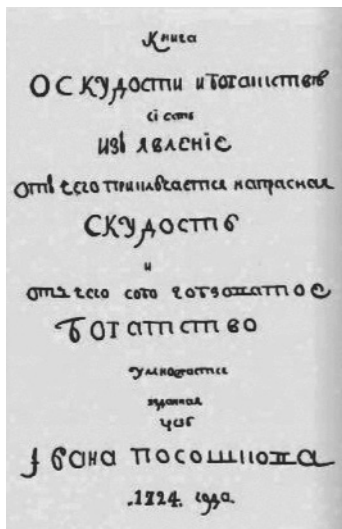 Книга
О СКУДОСТИ и богатстве
сі есть
изъявленіе
отъ чего приключается напрасная
СКУДОСТЬ
и
отъ чего
богатство
умножается
Ивана Посошкова
.1724. года.